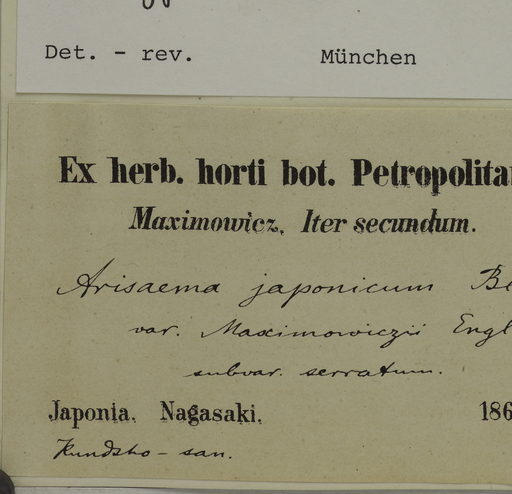 Det. - rev. München
Ex herb. horti bot. Petropolita
Maximowicz. Iter secundum.
Arisaema japonicum Bl
var. Maximowiczii Engl
subvar. serratum.
Japonia. Nagasaki. 186
Kundsho-san.